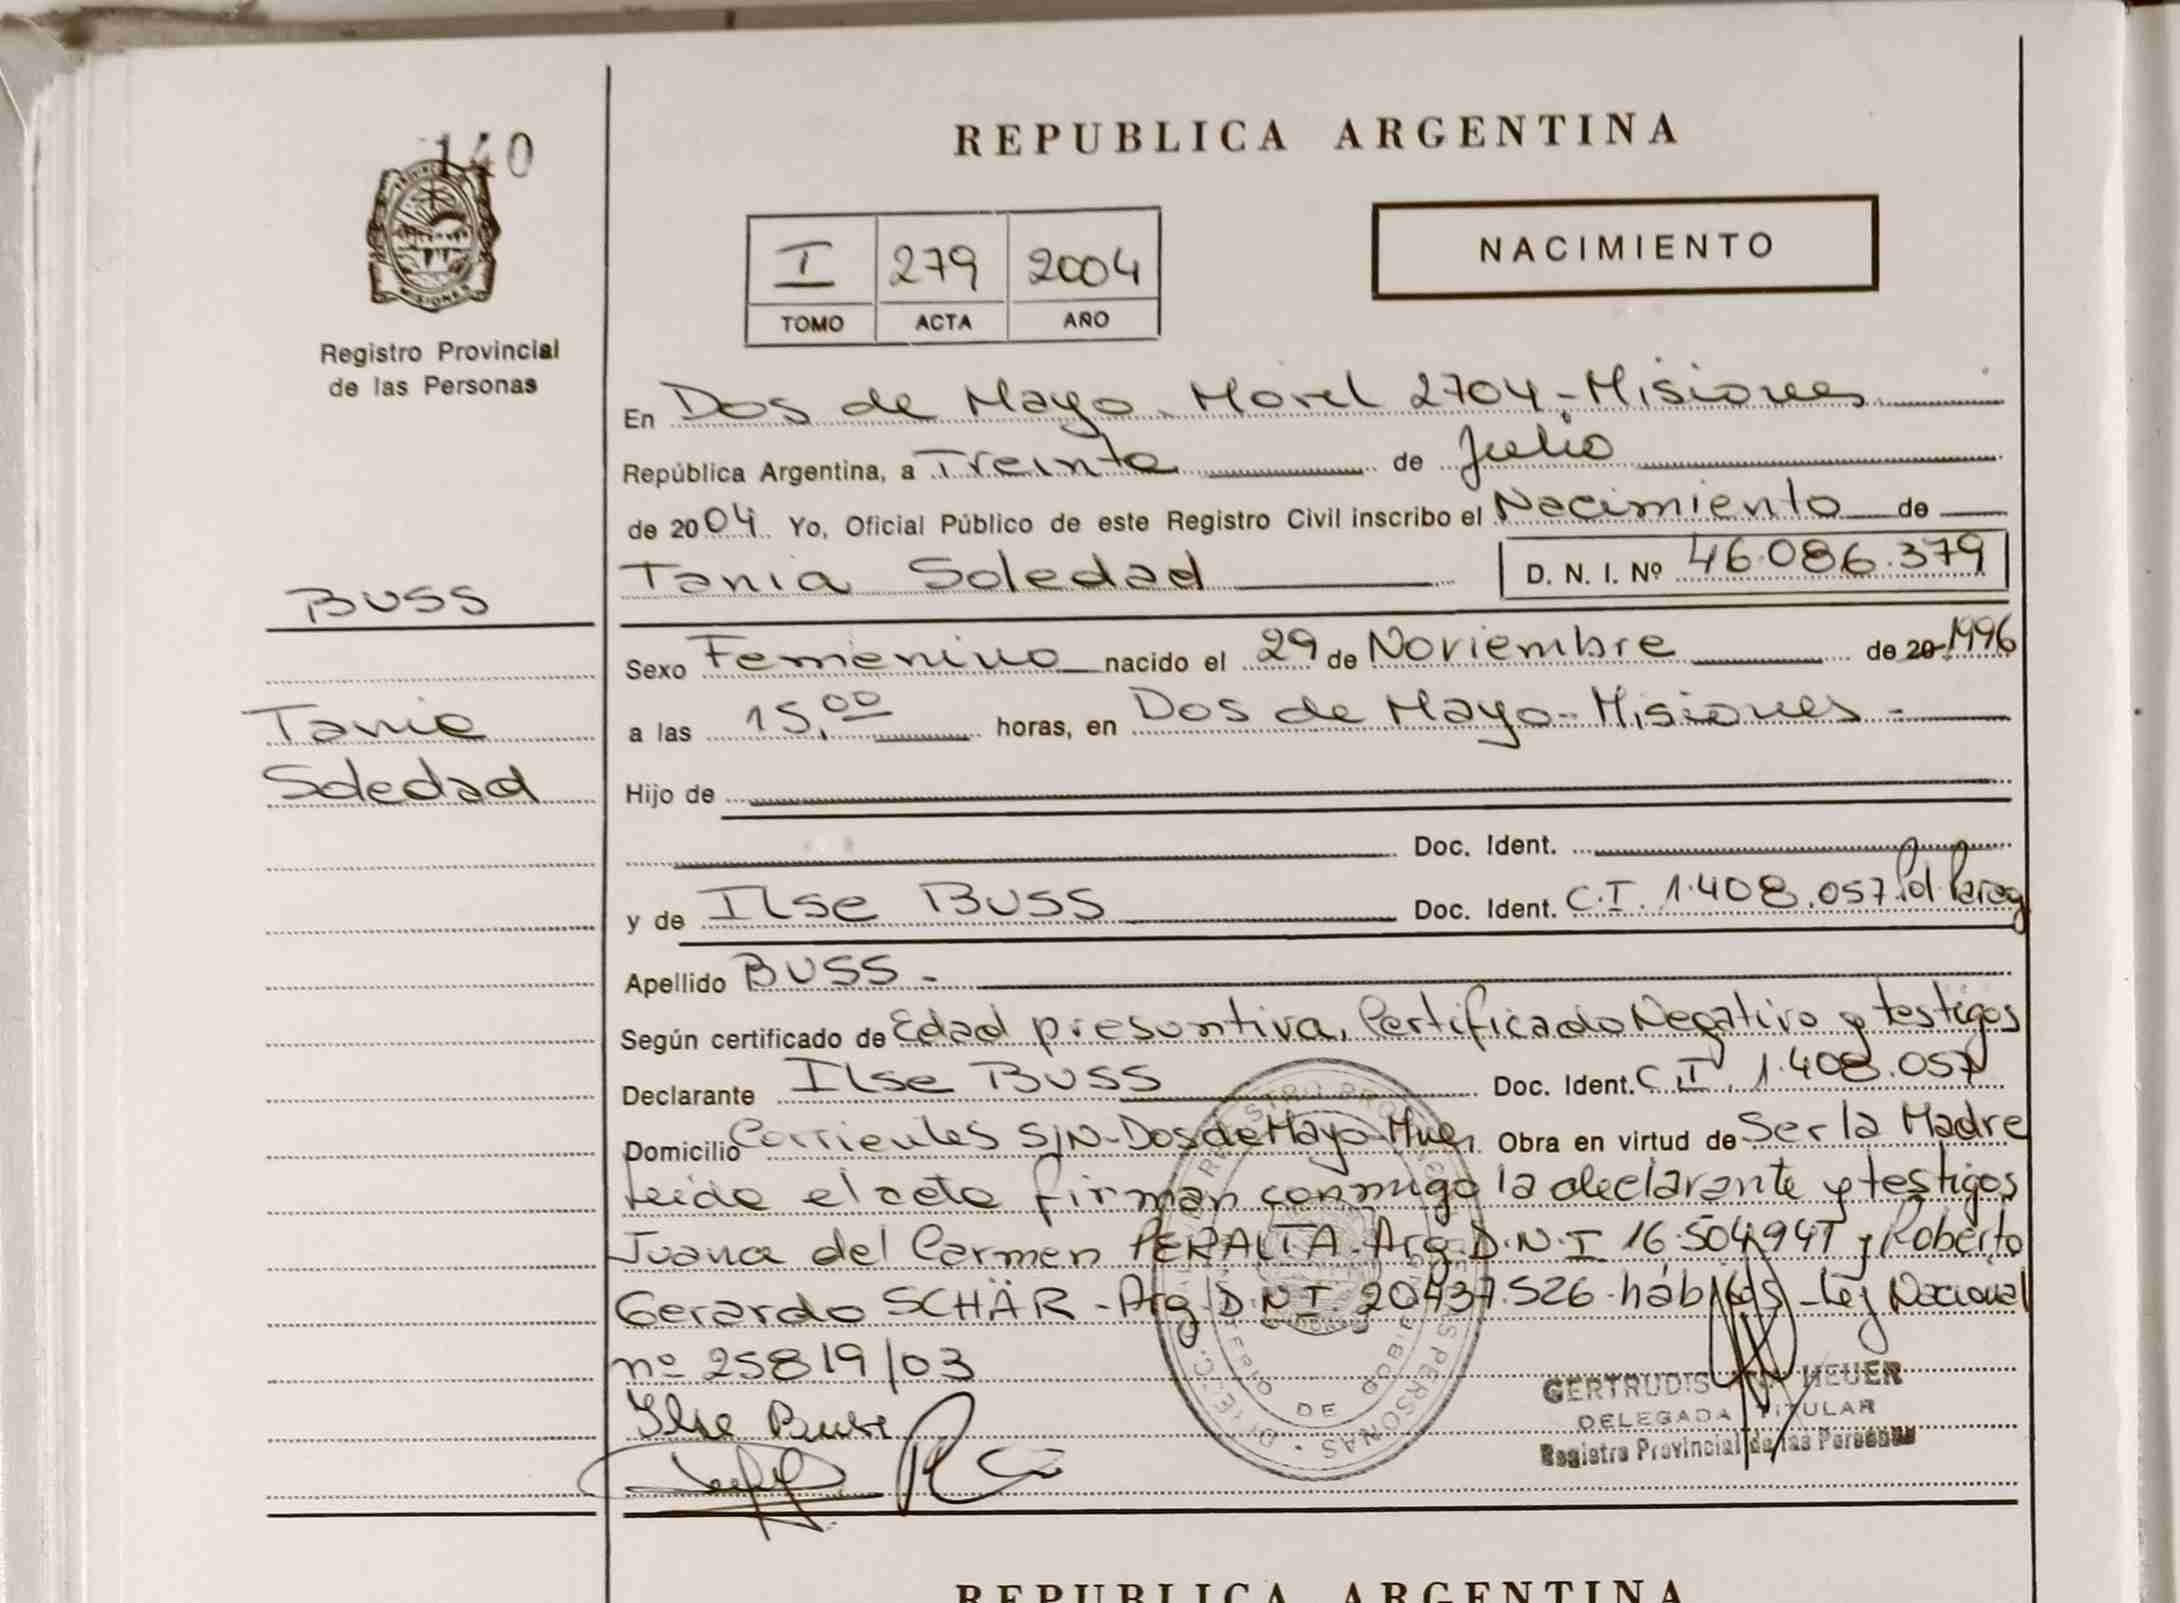 140
MISIONES
Registro Provincial
de las Personas
REPUBLICA ARGENTINA
NACIMIENTO
I 279 2004
TOMO ACTA AÑO
En Dos de Mayo - Morel 2704 - Misiones
República Argentina, a Treinta de Julio
de 2004 Yo, Oficial Público de este Registro Civil inscribo el Nacimiento de
Tania Soledad D. N. I. Nº 46.086.379
BUSS
Sexo Femenino nacido el 29 de Noviembre de 20 1996
Tania
a las 15,00 horas, en Dos de Mayo - Misiones -
Soledad
Hijo de
Doc. Ident.
y de Ilse BUSS Doc. Ident. C.I. 1.408.057 Pol. Parag
Apellido BUSS -
Según certificado de Edad presuntiva, Certificado Negativo y testigos
Declarante Ilse BUSS Doc. Ident. C.I. 1.408.057
Domicilio Corrientes S/N - Dos de Mayo Obra en virtud de Ser la Madre
Leida el acta firman conmigo la declarante y testigos
Juana del Carmen PERALTA - Arg. D.N.I 16.504.941 y Roberto
Gerardo SCHÄR - Arg. D.N.I. 20.437.526 - hábiles - Ley Nacional
nº 25819/03
Ilse Buss
GERTRUDIS HEUER
DELEGADA TITULAR
Registro Provincial de las Personas
REPUBLICA ARGENTINA